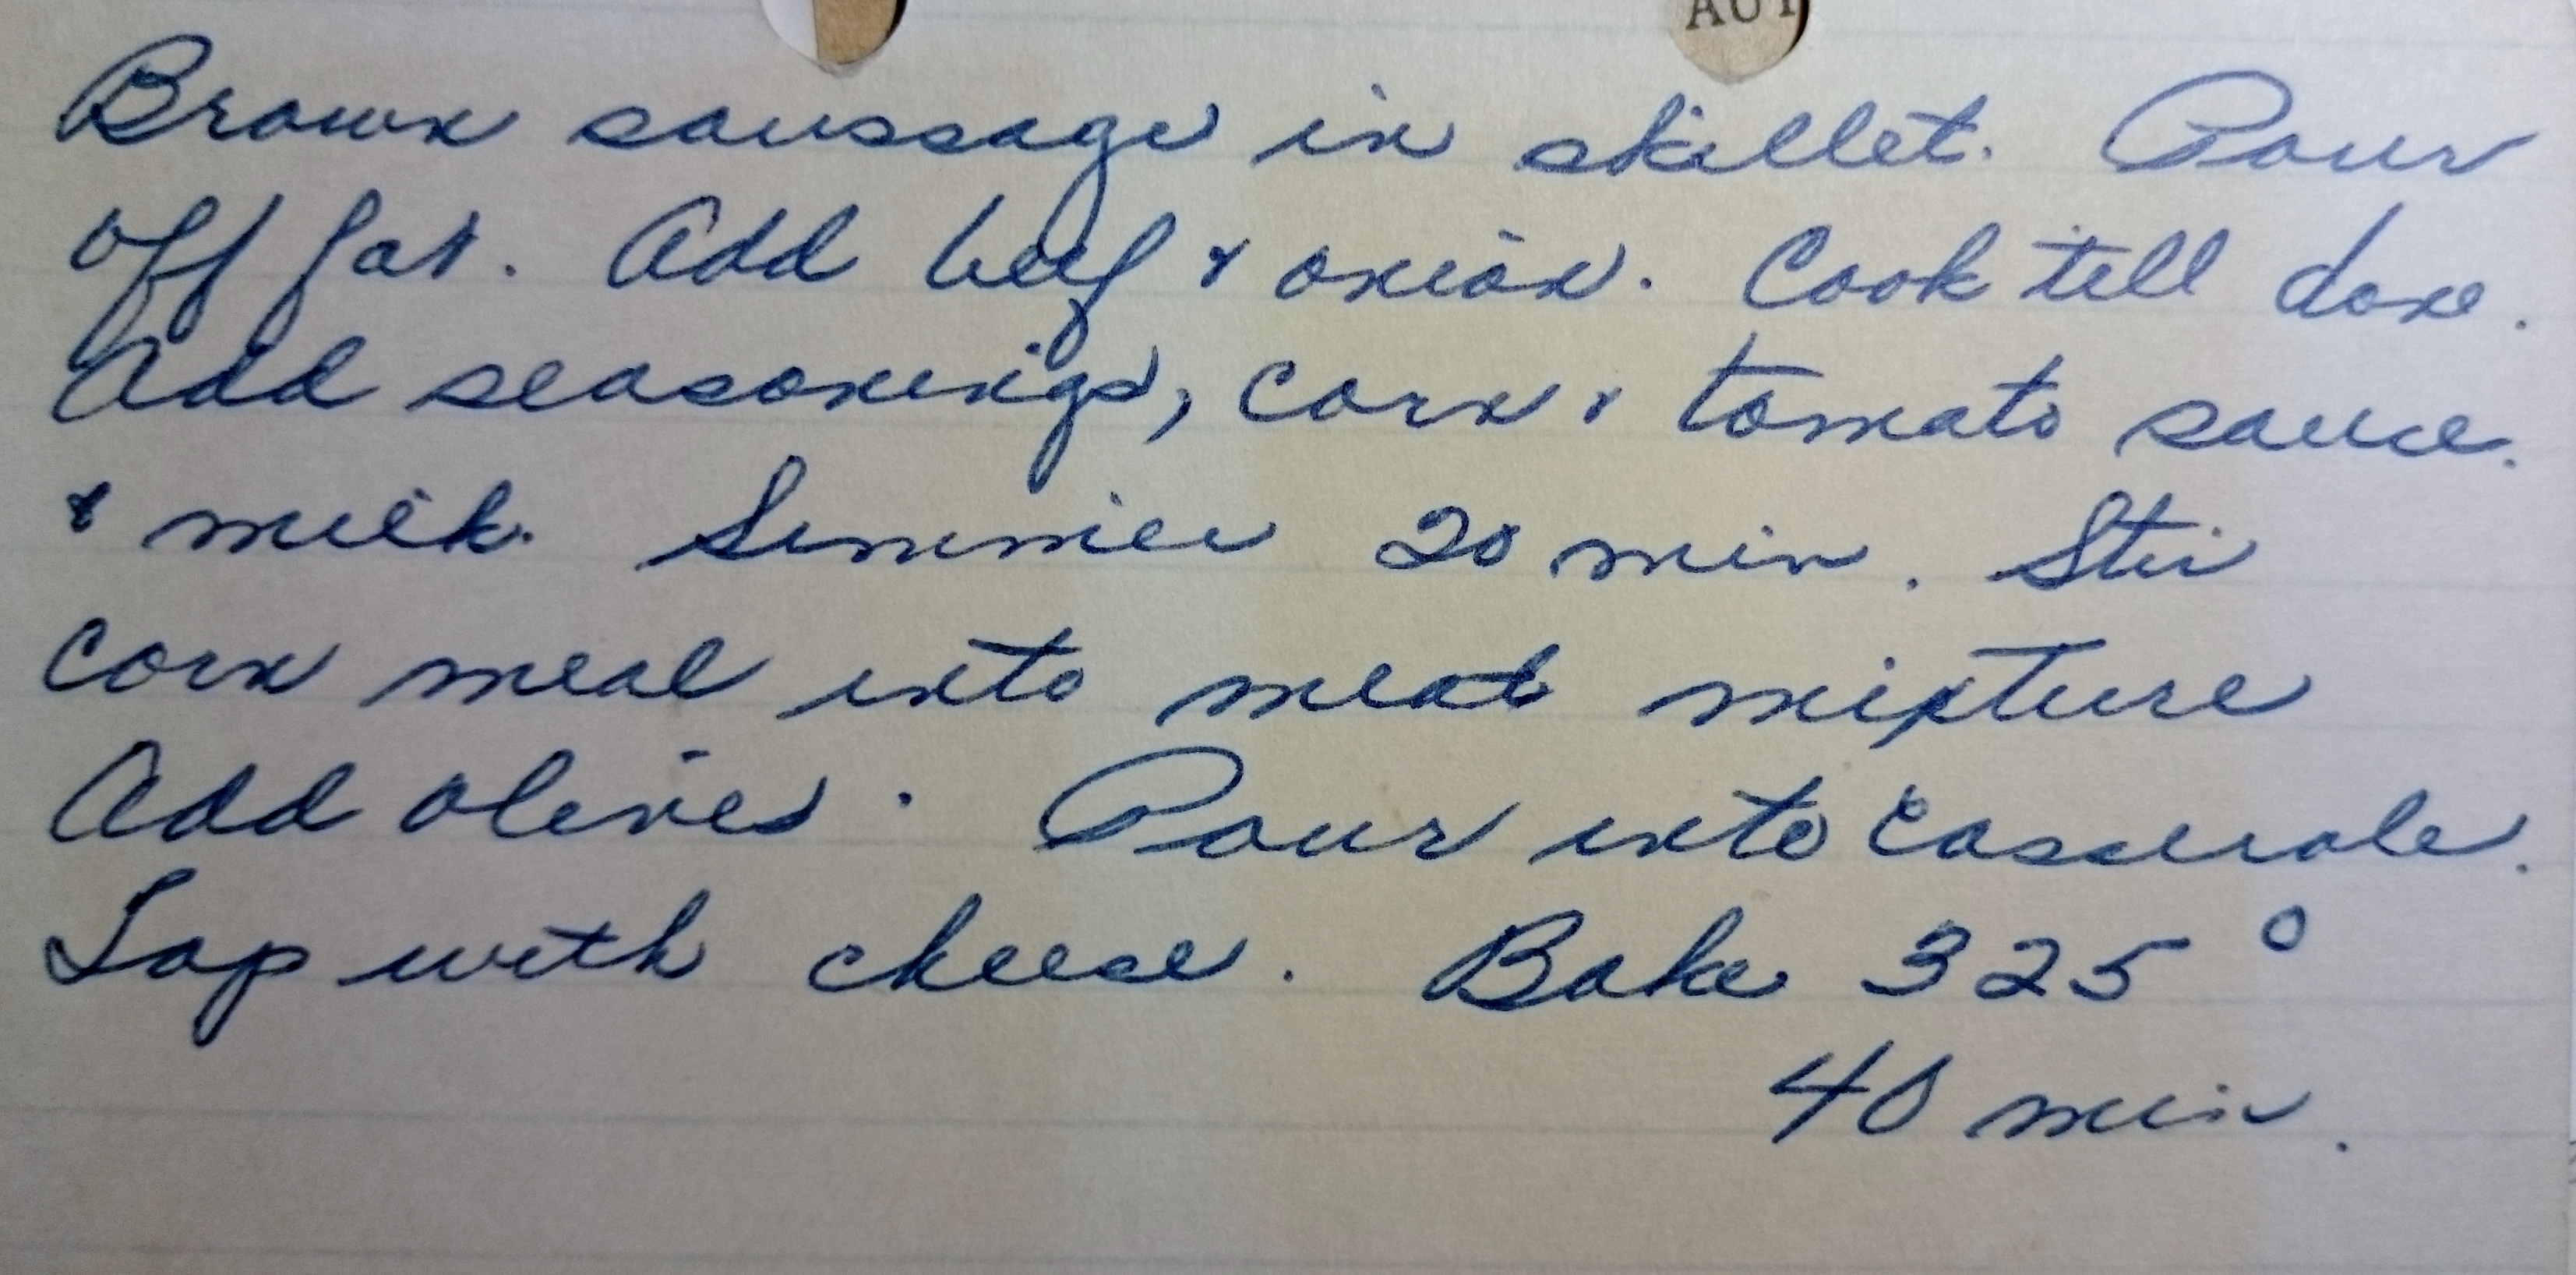 AUT
Brown saussage in skillet. Pour
off fat. Add beef & onion. Cook till done.
Add seasonings, corn & tomato sauce.
& milk. Simmer 20 min. Stir
corn meal into meat mixture
Add olives. Pour into casserole.
Top with cheese. Bake 325°
40 min.